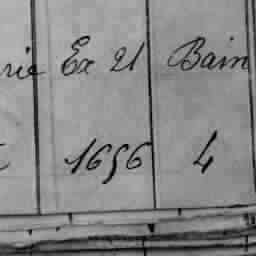 rie Ex 21 Bain
t 1656 4